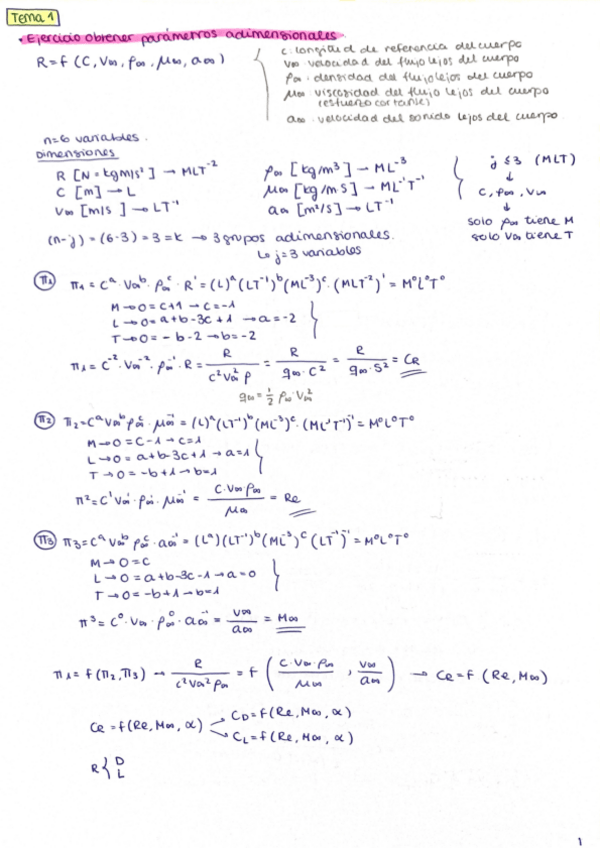 Tema 1
• Ejercicio obtener parámetros adimensionales.
R = f ( C, V∞, ρ∞, μ∞, a∞ )
c: longitud de referencia del cuerpo
V∞: velocidad del flujo lejos del cuerpo
ρ∞: densidad del flujo lejos del cuerpo
μ∞: viscosidad del flujo lejos del cuerpo
(esfuerzo cortante)
a∞: velocidad del sonido lejos del cuerpo
n=6 variables.
Dimensiones
R [N = kg m/s²] → MLT⁻²
C [m] → L
V∞ [m/s] → LT⁻¹
ρ∞ [kg/m³] → ML⁻³
μ∞ [kg/m s] → ML⁻¹T⁻¹
a∞ [m²/s] → LT⁻¹
j ≤ 3 (MLT)
↓
C, ρ∞, V∞
↓
solo ρ∞ tiene M
solo V∞ tiene T
(n-j) = (6-3) = 3 = k → 3 grupos adimensionales.
↳ j=3 variables
π1 π1 = Cᵃ · V∞ᵇ · ρ∞ᶜ · R¹ = (L)ᵃ (LT⁻¹)ᵇ (ML⁻³)ᶜ · (MLT⁻²)¹ = M⁰L⁰T⁰
M → 0 = c+1 → c=-1
L → 0 = a+b-3c+1 → a=-2
T → 0 = -b-2 → b=-2
π1 = C⁻² · V∞⁻² · ρ∞⁻¹ · R = R / c²V∞²ρ = R / q∞·C² = R / q∞·S² = CR
q∞ = 1/2 ρ∞ · V∞²
π2 π2 = Cᵃ V∞ᵇ ρ∞ᶜ · μ∞⁻¹ = (L)ᵃ (LT⁻¹)ᵇ (ML⁻³)ᶜ · (ML⁻¹T⁻¹)⁻¹ = M⁰L⁰T⁰
M → 0 = C-1 → c=1
L → 0 = a+b-3c+1 → a=1
T → 0 = -b+1 → b=1
π² = C¹ V∞¹ · ρ∞¹ · μ∞⁻¹ = C·V∞ ρ∞ / μ∞ = Re
π3 π3 = Cᵃ V∞ᵇ ρ∞ᶜ · a∞⁻¹ = (Lᵃ) (LT⁻¹)ᵇ (ML⁻³)ᶜ (LT⁻¹)⁻¹ = M⁰L⁰T⁰
M → 0 = C
L → 0 = a+b-3c-1 → a=0
T → 0 = -b+1 → b=1
π³ = C⁰ · V∞ · ρ∞⁰ · a∞⁻¹ = V∞ / a∞ = M∞
π1 = f (π2, π3) → R / c²V∞²ρ∞ = f ( C·V∞·ρ∞ / μ∞ , V∞ / a∞ ) → CR = f (Re, M∞)
CR = f (Re, M∞, α)
CD = f(Re, M∞, α)
CL = f(Re, M∞, α)
R { D
L
1